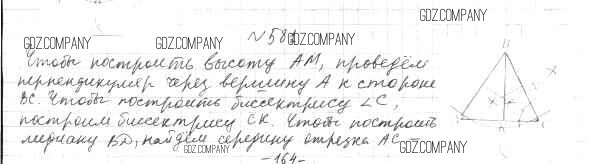 GDZ.COMPANY
GDZ.COMPANY GDZ.COMPANY № 58 GDZ.COMPANY
Чтобы построить высоту AM, проведём
перпендикуляр через вершину A к стороне
BC. Чтобы построить биссектрису ∠C,
построим биссектрису CK. Чтобы построить
медиану BD, найдём середину отрезка AC
GDZ.COMPANY GDZ.COMPANY
-164-